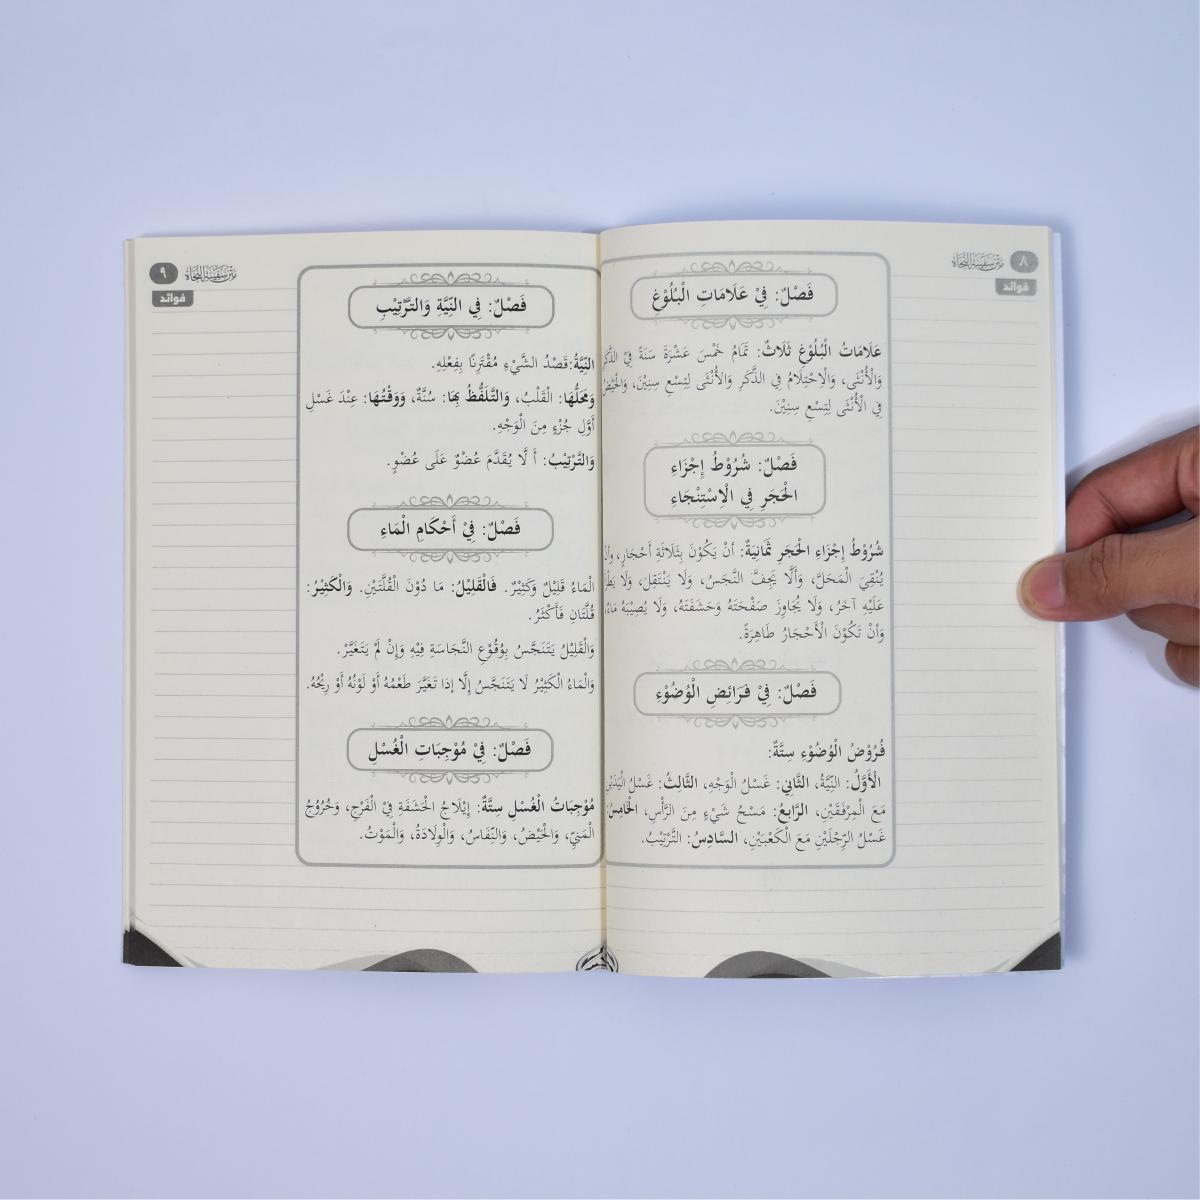 ٨
متن سفينة النجاة
فوائد
فَصْلٌ: فِيْ عَلَامَاتِ الْبُلُوْغِ
عَلَامَاتُ الْبُلُوْغِ ثَلَاثٌ: تَمَامُ خَمْسَ عَشْرَةَ سَنَةً فِيْ الذَّكَرِ
وَالْأُنْثَى، وَالِاحْتِلَامُ فِي الذَّكَرِ وَالْأُنْثَى لِتِسْعِ سِنِيْنَ، وَالْحَيْضُ
فِي الْأُنْثَى لِتِسْعِ سِنِيْنَ.
فَصْلٌ: شُرُوْطُ إِجْزَاءِ
الْحَجَرِ فِي الْاِسْتِنْجَاءِ
شُرُوْطُ إِجْزَاءِ الْحَجَرِ ثَمَانِيَةٌ: أَنْ يَكُوْنَ بِثَلَاثَةِ أَحْجَارٍ، وَأَنْ
يُنْقِيَ الْمَحَلَّ، وَأَلَّا يَجِفَّ النَّجَسُ، وَلَا يَنْتَقِلَ، وَلَا
عَلَيْهِ آخَرُ، وَلَا يُجَاوِزَ صَفْحَتَهُ وَحَشَفَتَهُ، وَلَا يُصِيْبَهُ مَاءٌ
وَأَنْ تَكُوْنَ الْأَحْجَارُ طَاهِرَةً.
فَصْلٌ: فِيْ فَرَائِضِ الْوُضُوْءِ
فُرُوْضُ الْوُضُوْءِ سِتَّةٌ:
الْأَوَّلُ: النِّيَّةُ، الثَّانِيْ: غَسْلُ الْوَجْهِ، الثَّالِثُ: غَسْلُ الْيَدَيْنِ
مَعَ الْمِرْفَقَيْنِ، الرَّابِعُ: مَسْحُ شَيْءٍ مِنَ الرَّأْسِ، الْخَامِسُ:
غَسْلُ الرِّجْلَيْنِ مَعَ الْكَعْبَيْنِ، السَّادِسُ: التَّرْتِيْبُ.
متن سفينة النجاة
٩
فوائد
فَصْلٌ: فِي النِّيَّةِ وَالتَّرْتِيْبِ
النِّيَّةُ: قَصْدُ الشَّيْءِ مُقْتَرِنًا بِفِعْلِهِ.
وَمَحَلُّهَا: الْقَلْبُ، وَالتَّلَفُّظُ بِهَا: سُنَّةٌ، وَوَقْتُهَا: عِنْدَ غَسْلِ
أَوَّلِ جُزْءٍ مِنَ الْوَجْهِ.
وَالتَّرْتِيْبُ: أَ لَّا يُقَدَّمَ عُضْوٌ عَلَى عُضْوٍ.
فَصْلٌ: فِيْ أَحْكَامِ الْمَاءِ
الْمَاءُ قَلِيْلٌ وَكَثِيْرٌ. فَالْقَلِيْلُ: مَا دُوْنَ الْقُلَّتَيْنِ. وَالْكَثِيْرُ:
قُلَّتَانِ فَأَكْثَرُ.
وَالْقَلِيْلُ يَتَنَجَّسُ بِوُقُوْعِ النَّجَاسَةِ فِيْهِ وَإِنْ لَمْ يَتَغَيَّرْ.
وَالْمَاءُ الْكَثِيْرُ لَا يَتَنَجَّسُ إِلَّا إذا تَغَيَّرَ طَعْمُهُ أَوْ لَوْنُهُ أَوْ رِيْحُهُ.
فَصْلٌ: فِيْ مُوْجِبَاتِ الْغُسْلِ
مُوْجِبَاتُ الْغُسْلِ سِتَّةٌ: إِيْلَاجُ الْحَشَفَةِ فِيْ الْفَرْجِ، وَخُرُوْجُ
الْمَنِيِّ، وَالْحَيْضُ، وَالنِّفَاسُ، وَالْوِلَادَةُ، وَالْمَوْتُ.